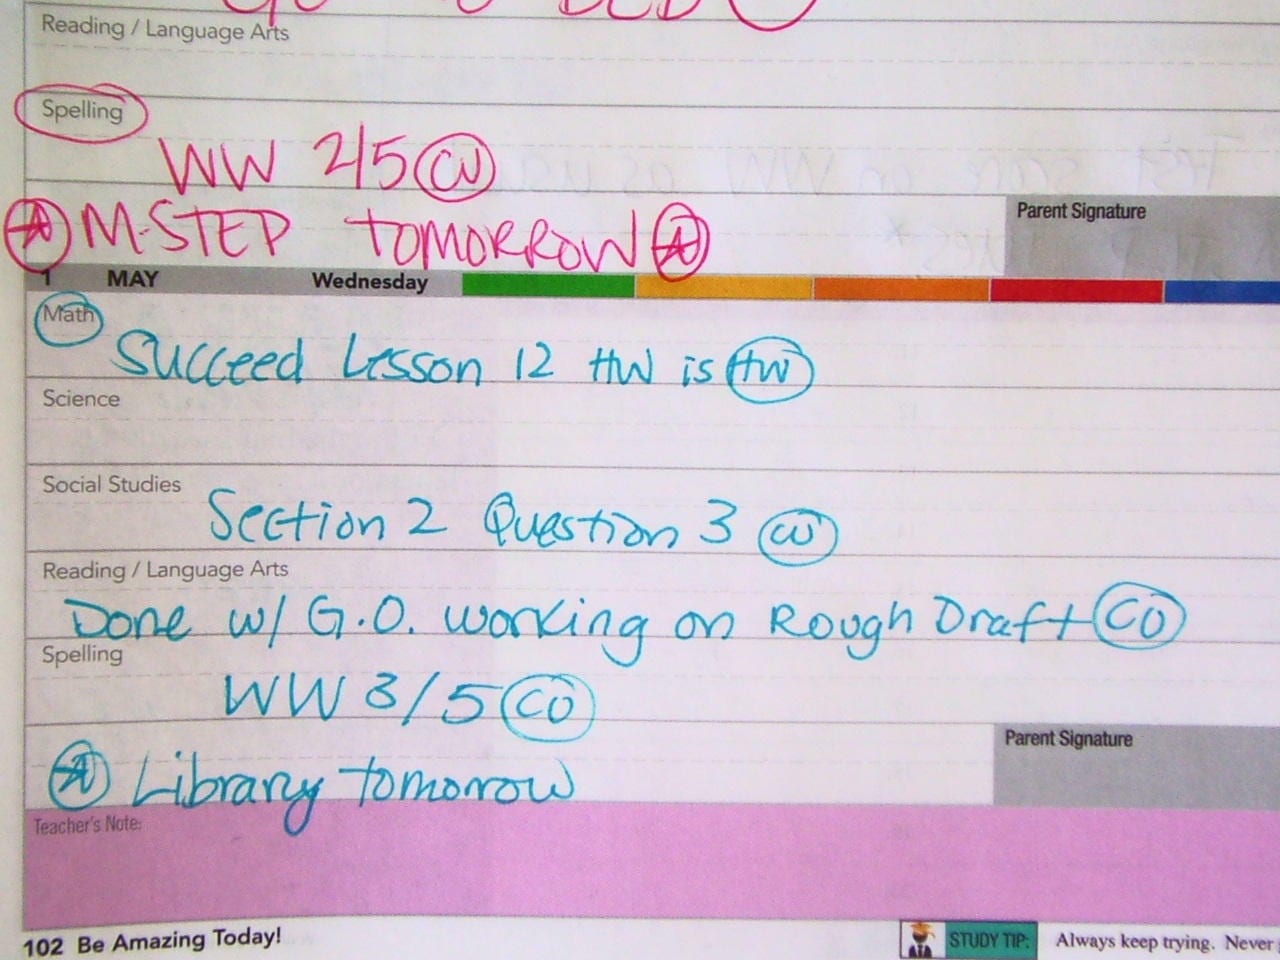 Reading / Language Arts
Spelling
WW 2/5 CW
M-STEP TOMORROW
Parent Signature
1 MAY Wednesday
Math
Succeed Lesson 12 HW is HW
Science
Social Studies
Section 2 Question 3 CW
Reading / Language Arts
Done w/ G.O. working on Rough Draft CO
Spelling
WW 3/5 CO
Parent Signature
Library tomorrow
Teacher's Note:
102 Be Amazing Today!
STUDY TIP: Always keep trying. Never